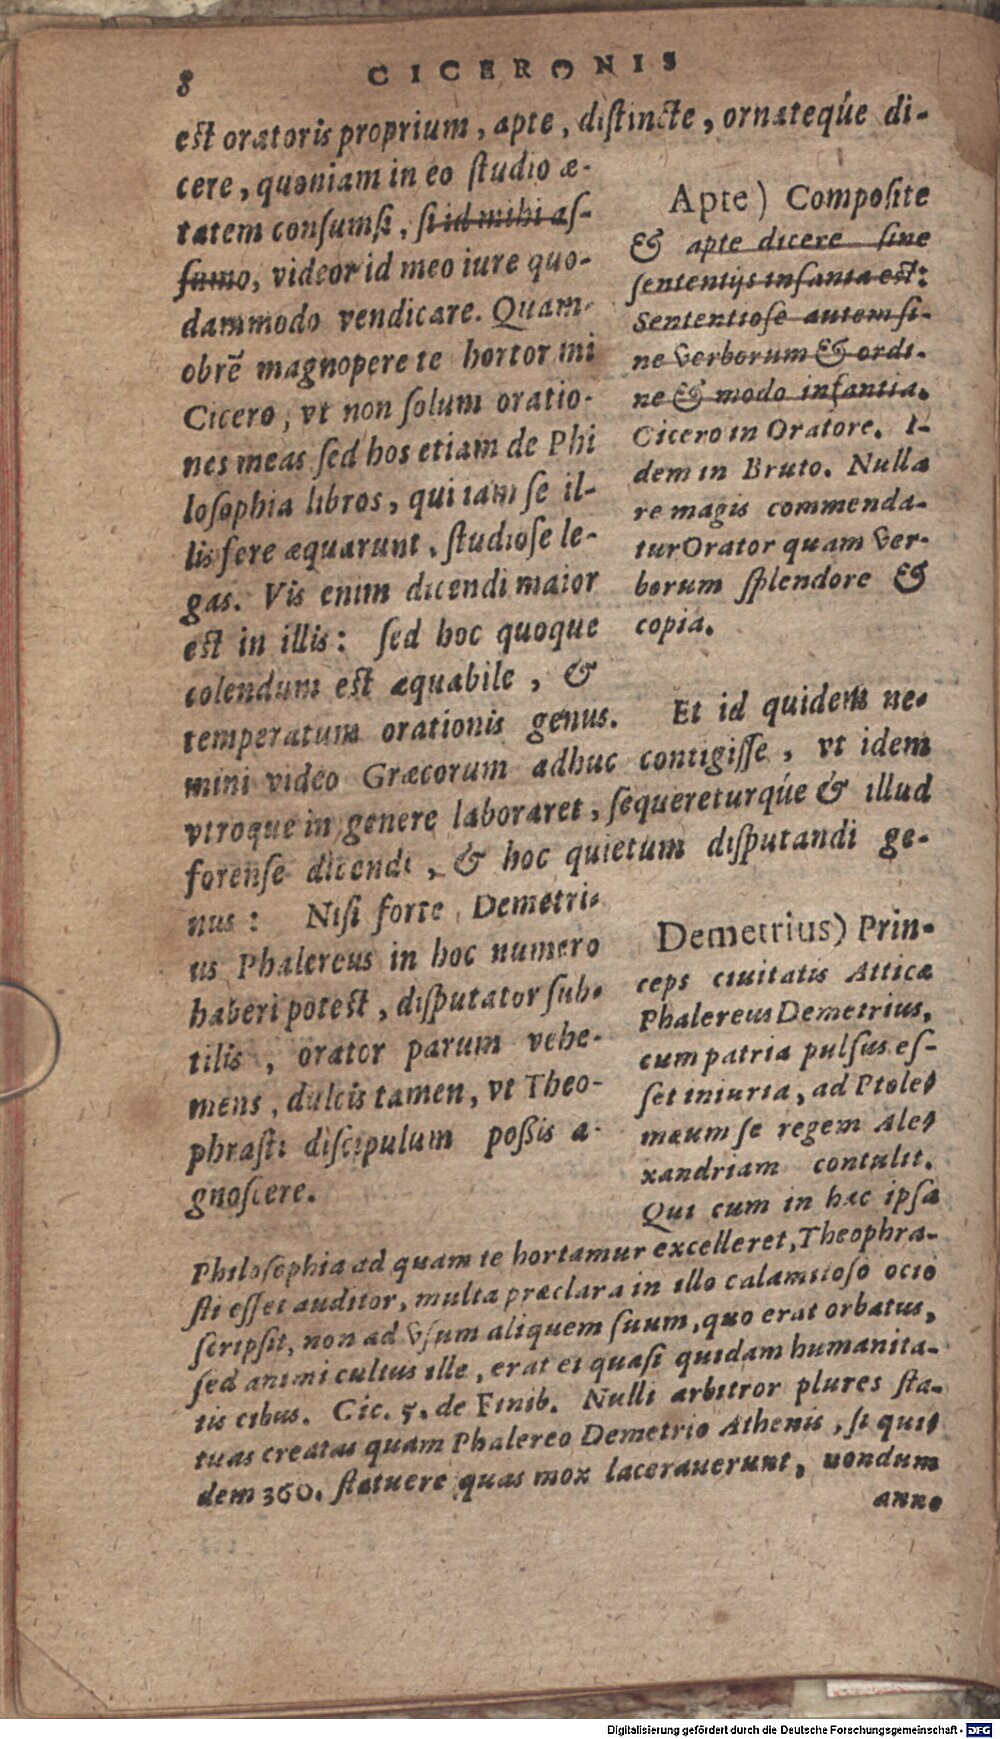 8 CICERONIS
est oratoris proprium, apte, distincte, ornateqúe di-
cere, quoniam in eo studio æ-
tatem consumsi, si id mihi as-
sumo, videor id meo iure quo-
dammodo vendicare. Quam-
obrē magnopere te hortor mi
Cicero, vt non solum oratio-
nes meas sed hos etiam de Phi
losophia libros, qui iam se il-
lis fere æquarunt, studiose le-
gas. Vis enim dicendi maior
est in illis: sed hoc quoque
colendum est æquabile, &
temperatum orationis genus.
Apte) Composite
& apte dicere sine
sententijs insania est:
Sententiose autem si-
ne verborum & ordi-
ne & modo infantia.
Cicero in Oratore. I-
dem in Bruto. Nulla
re magis commenda-
tur Orator quam ver-
borum splendore &
copia.
Et id quidem ne-
mini video Græcorum adhuc contigisse, vt idem
vtroque in genere laboraret, sequereturqúe & illud
forense dicendi, & hoc quietum disputandi ge-
nus: Nisi forte Demetri-
us Phalereus in hoc numero
haberi potest, disputator sub-
tilis, orator parum vehe-
mens, dulcis tamen, vt Theo-
phrasti discipulum poßis a-
gnoscere.
Demetrius) Prin-
ceps ciuitatis Atticæ
Phalereus Demetrius,
cum patria pulsus es-
set iniuria, ad Ptole-
mæum se regem Ale-
xandriam contulit.
Qui cum in hac ipsa
Philosophia ad quam te hortamur excelleret, Theophra-
sti esset auditor, multa præclara in illo calamitoso ocio
scripsit, non ad vsum aliquem suum, quo erat orbatus,
sed animi cultus ille, erat ei quasi quidam humanita-
tis cibus. Cic. 5. de Finib. Nulli arbitror plures sta-
tuas creatas quam Phalereo Demetrio Athenis, si qui-
dem 360. statuere quas mox lacerauerunt, nondum
anno
Digitalisierung gefördert durch die Deutsche Forschungsgemeinschaft - DFG